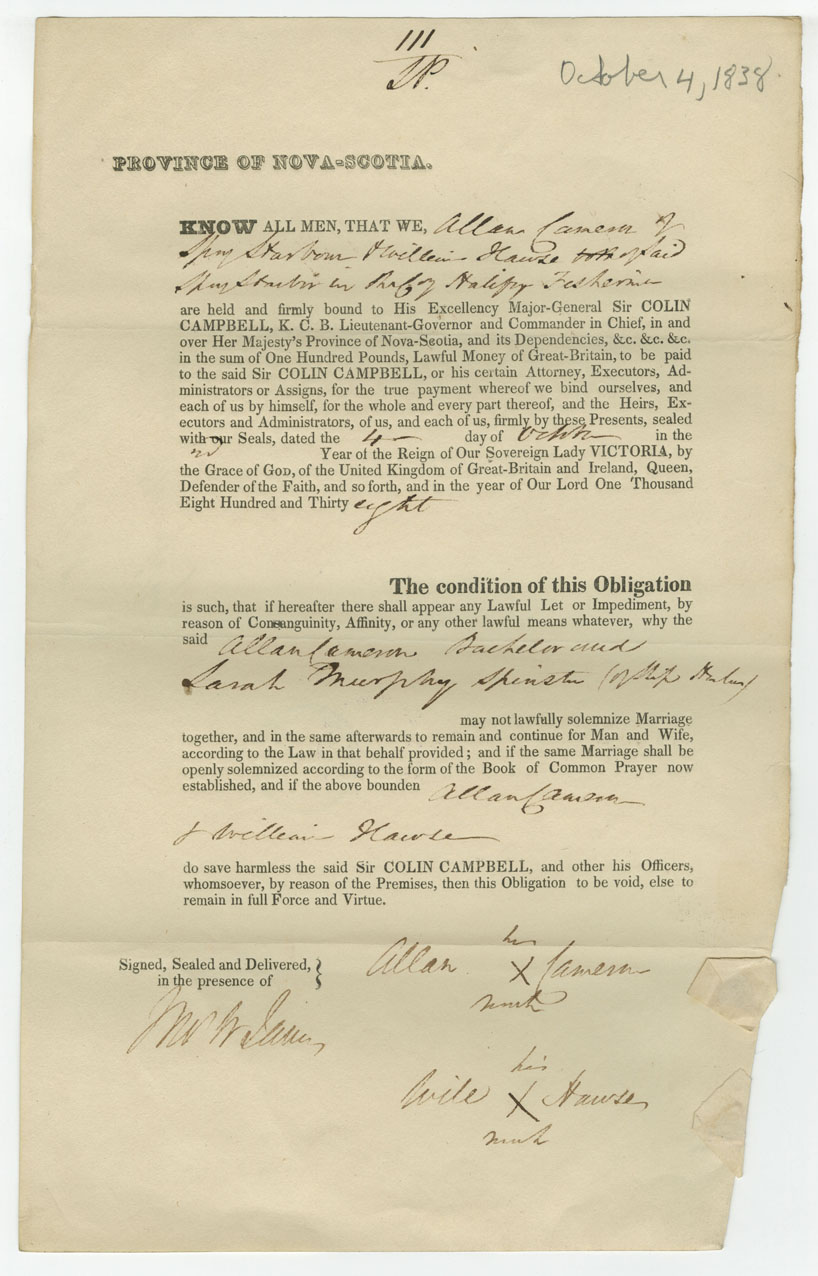 111
October 4, 1838.
PROVINCE OF NOVA-SCOTIA.
KNOW ALL MEN, THAT WE, Allan Cameron of
Harbour & William Hawse of said
in Halifax Fishermen
are held and firmly bound to His Excellency Major-General Sir COLIN
CAMPBELL, K. C. B. Lieutenant-Governor and Commander in Chief, in and
over Her Majesty's Province of Nova-Scotia, and its Dependencies, &c. &c. &c.
in the sum of One Hundred Pounds, Lawful Money of Great-Britain, to be paid
to the said Sir COLIN CAMPBELL, or his certain Attorney, Executors, Ad-
ministrators or Assigns, for the true payment whereof we bind ourselves, and
each of us by himself, for the whole and every part thereof, and the Heirs, Ex-
ecutors and Administrators, of us, and each of us, firmly by these Presents, sealed
with our Seals, dated the 4 day of October in the
2d Year of the Reign of Our Sovereign Lady VICTORIA, by
the Grace of GOD, of the United Kingdom of Great-Britain and Ireland, Queen,
Defender of the Faith, and so forth, and in the year of Our Lord One Thousand
Eight Hundred and Thirty eight
The condition of this Obligation
is such, that if hereafter there shall appear any Lawful Let or Impediment, by
reason of Consanguinity, Affinity, or any other lawful means whatever, why the
said Allan Cameron Bachelor and
Sarah Murphy Spinster (of Ship Harbour)
may not lawfully solemnize Marriage
together, and in the same afterwards to remain and continue for Man and Wife,
according to the Law in that behalf provided; and if the same Marriage shall be
openly solemnized according to the form of the Book of Common Prayer now
established, and if the above bounden Allan Cameron
& William Hawse
do save harmless the said Sir COLIN CAMPBELL, and other his Officers,
whomsoever, by reason of the Premises, then this Obligation to be void, else to
remain in full Force and Virtue.
Signed, Sealed and Delivered,
in the presence of
his
Allan X Cameron
mark
his
Will X Hawse
mark